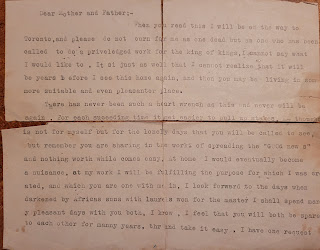 Dear Mother and Father;-
When you read this I will be on the way to
Toronto, and please do not morn for me as one dead but as one who has been
called to do a priveledged work for the king of kings, I cannot say what
I would like to. It is just as well that I cannot realize that it will
be years before I see this home again, and then you may be living in some
more suitable and even pleasanter place.
There has never been such a heart wrench as this and never will be
again. for each succeeding time it get easier to pull up stakes.
is not for myself but for the lonely days that you will be called to
but remember you are sharing in the work of spreading the "good news"
and nothing worth while comes easy, at home I would eventually become
a nuisance, at my work I will be fulfilling the purpose for which I was cre
ated, and which you are one with me in, I look forward to the days when
darkened by Africas suns with laurels won for the master I shall spend man
y pleasant days with you both, I know, I feel that you will both be spared
to each other for manny years, and take it easy. I have one request